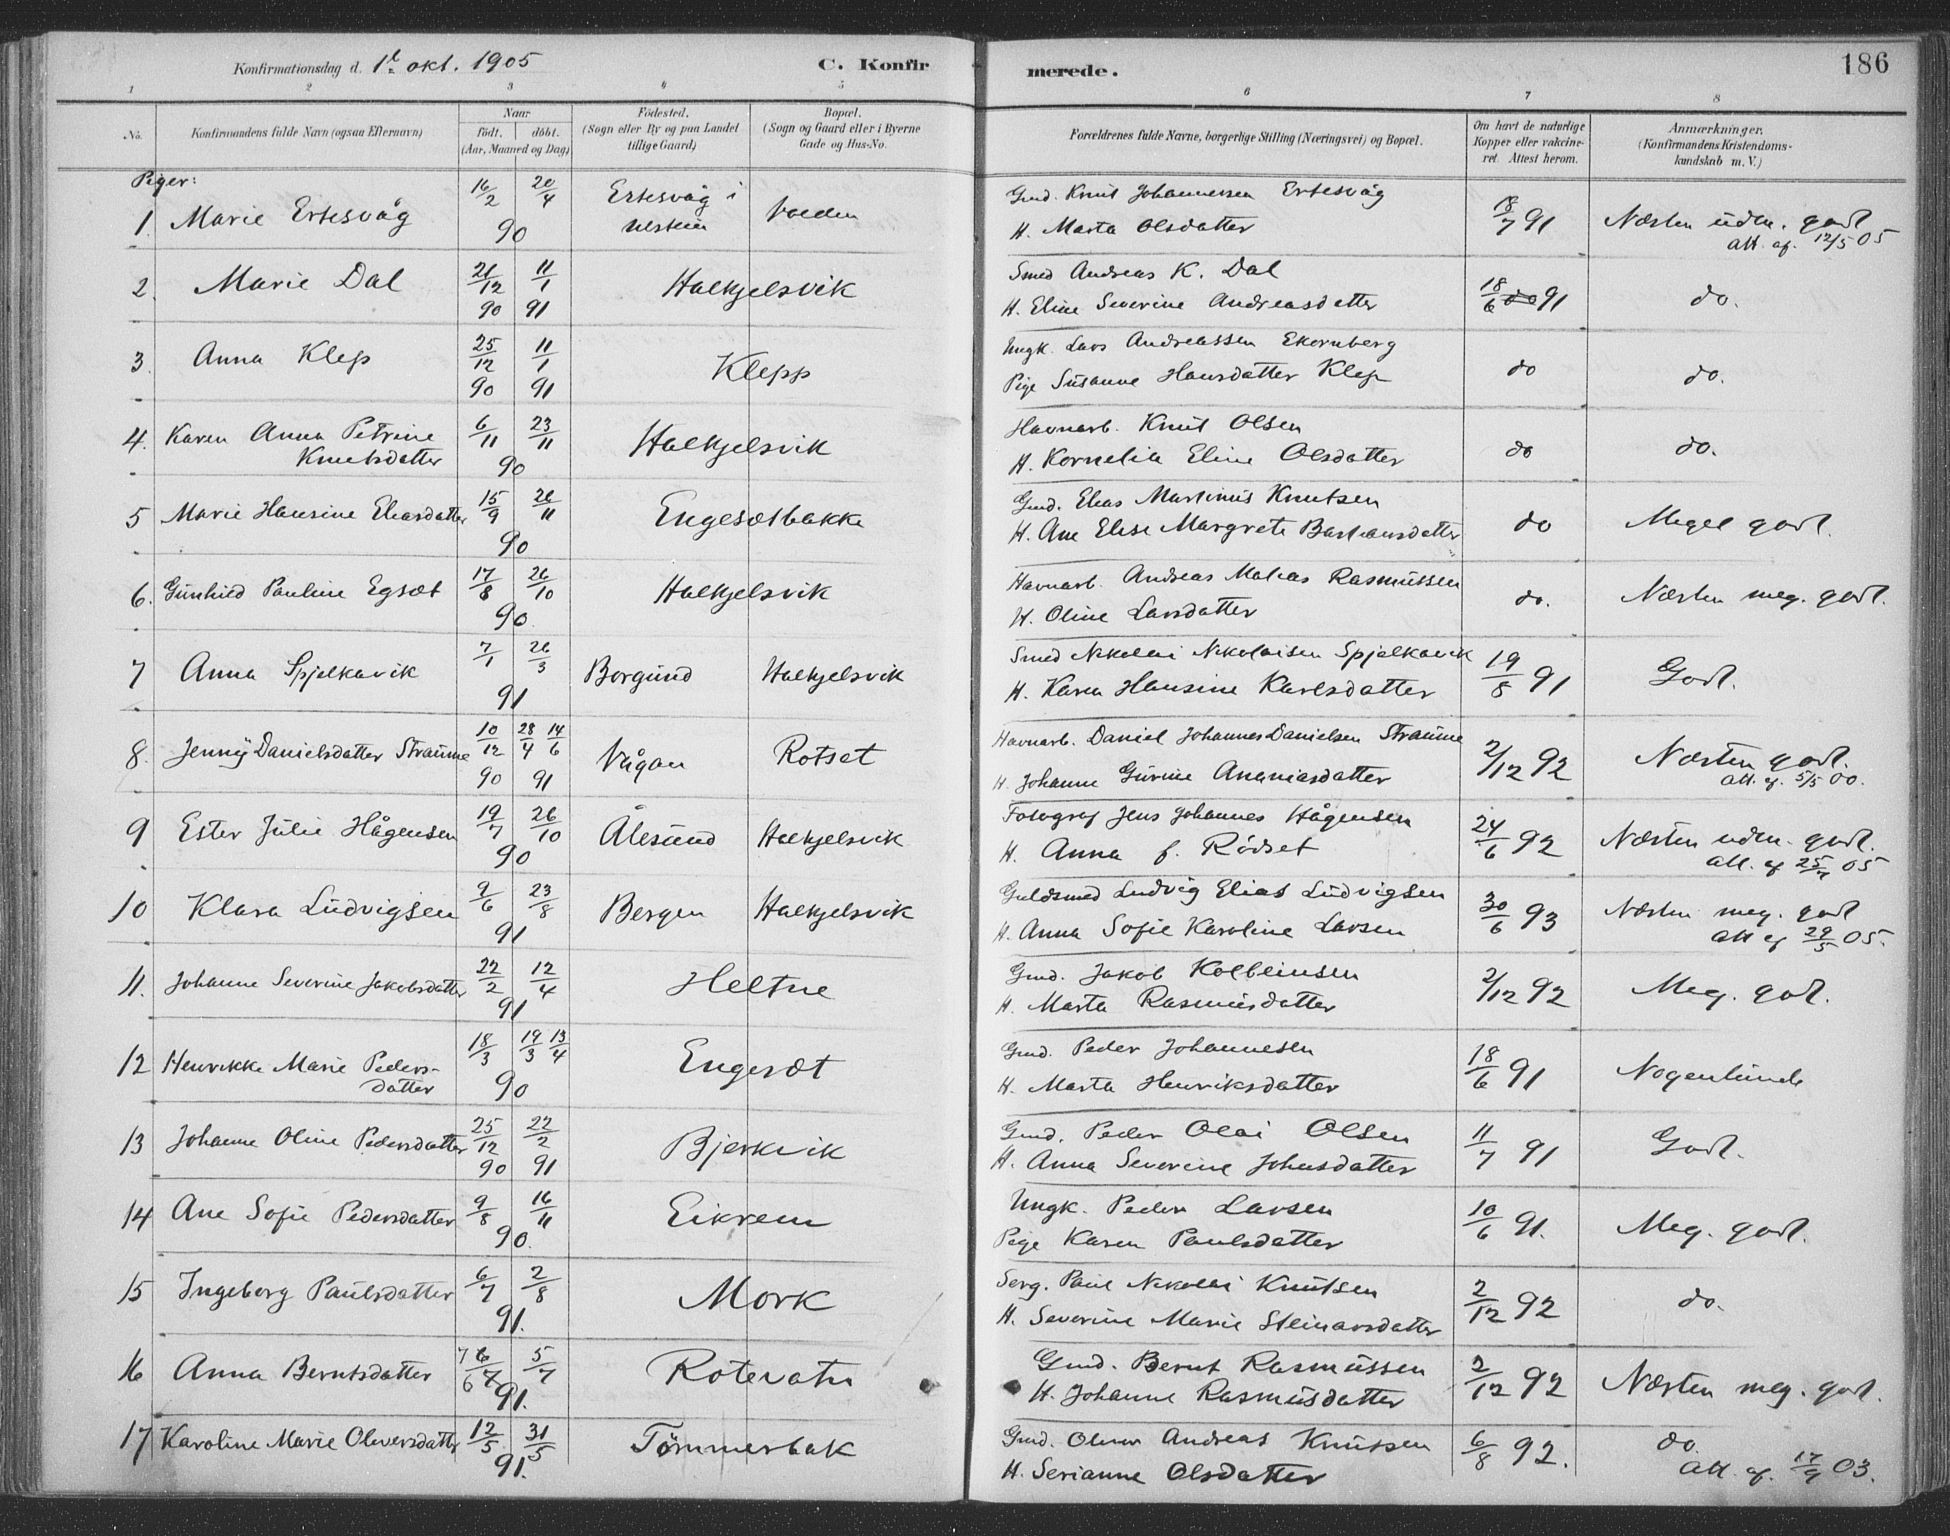 186
Konfirmationsdag d. 1te okt. 1905 C. Konfirmerede.
1 2 3 4 5 6 7 8
No. Konfirmandens fulde Navn (ogsaa Efternavn) Naar født. døbt. (Aar, Maaned og Dag) Fødested. (Sogn eller By og paa Landet tillige Gaard) Bopæl. (Sogn og Gaard eller i Byerne Gade og Hus-No. Forældrenes fulde Navne, borgerlige Stilling (Næringsvei) og Bopæl. Om havt de naturlige Kopper eller vakcineret. Attest herom. Anmærkninger. (Konfirmandens Kristendomskundskab m. V.)
Piger:
1. Marie Ertesvåg 16/2 20/4 90 Ertesvåg i Ulstein Volden Gmd. Knut Johannessen Ertesvåg
H. Marta Olsdatter 18/7 91 Næsten udm. godt
att. af. 12/5 05
2. Marie Dal 21/12 90 11/1 91 Halkjelsvik Smed Andreas K. Dal
H. Eline Severine Andreasdatter 18/6 91 do.
3. Anna Klep 25/12 90 11/1 91 Klepp Ungk. Lars Andreassen Ekornberg
Pige Susanne Hansdatter Klep do do.
4. Karen Anna Petrine Knutsdatter 6/11 23/11 90 Halkjelsvik Havnarb. Knut Olsen
H. Kornelia Eline Olsdatter do do.
5 Marie Hansine Eliasdatter 15/9 26/11 90 Engesætbakke Gmd. Elias Martinus Knutsen
H. Ane Elise Margrete Bastiansdatter do Meget godt.
6. Gunhild Pauline Egsæt 17/8 26/10 90 Halkjelsvik Havnarb. Andreas Matias Rasmussen
H. Oline Larsdatter do. Næsten meg. godt.
7 Anna Spjelkavik 7/1 26/3 91 Borgund Halkjelsvik Smed Nikolai Nikolaisen Spjelkavik
H. Karen Hansine Karlsdatter 19/8 91 Godt.
8. Jenny Danielsdatter Straume 10/12 90 28/4 14/6 91 Vågan Rotset Havnarb. Daniel Johannes Danielsen Straume
H. Johanne Gurine Ananiasdatter 2/12 92 Næsten godt.
att. af. 5/5 00.
9 Ester Julie Hågensen 19/7 26/10 90 Ålesund Halkjelsvik Fotograf Jens Johannes Hågensen
H. Anna f. Rødset 24/6 92 Næsten udm. godt.
att. af 05
10 Klara Ludvigsen 9/6 23/8 91 Bergen Halkjelsvik Guldsmed Ludvig Elias Ludvigsen
H. Anna Sofie Karoline Larsen 30/6 93 Næsten meg. godt
att af 29/5 05.
11. Johanne Severine Jakobsdatter 22/2 12/4 91 Heltne Gmd. Jakob Kolbeinsen
H. Marta Rasmusdatter 2/12 92 Meg. godt.
12 Henrikke Marie Pedersdatter 18/3 19/3 13/4 90 Engesæt Gmd. Peder Johannesen
H. Marta Henriksdatter 18/6 91 Nogenlunde
13 Johanne Oline Pedersdatter 25/12 90 22/2 91 Bjerkvik Gmd. Peder Olai Olsen
H. Anna Severine Johnsdatter 11/7 91 Godt.
14 Ane Sofie Pedersdatter 9/8 16/11 90. Eikrem Ungk. Peder Larsen
Pige Karen Paulsdatter 10/6 91. Meg. godt.
15 Ingeborg Paulsdatter 6/7 2/8 91. Mork Serg. Paul Nikolai Knutsen
H. Severine Marie Steinarsdatter 2/12 92 do.
16 Anna Berntsdatter 5/7 91. Rotevatn Gmd. Bernt Rasmussen
H. Johanne Rasmusdatter 2/12 92 Næsten meg. godt.
17 Karoline Marie Oliversdatter 12/5 31/5 91. Tømmerbak Gmd. Oliver Andreas Knutsen
H. Serianne Olsdatter 6/8 92. do.
att. af. 17/9 03.